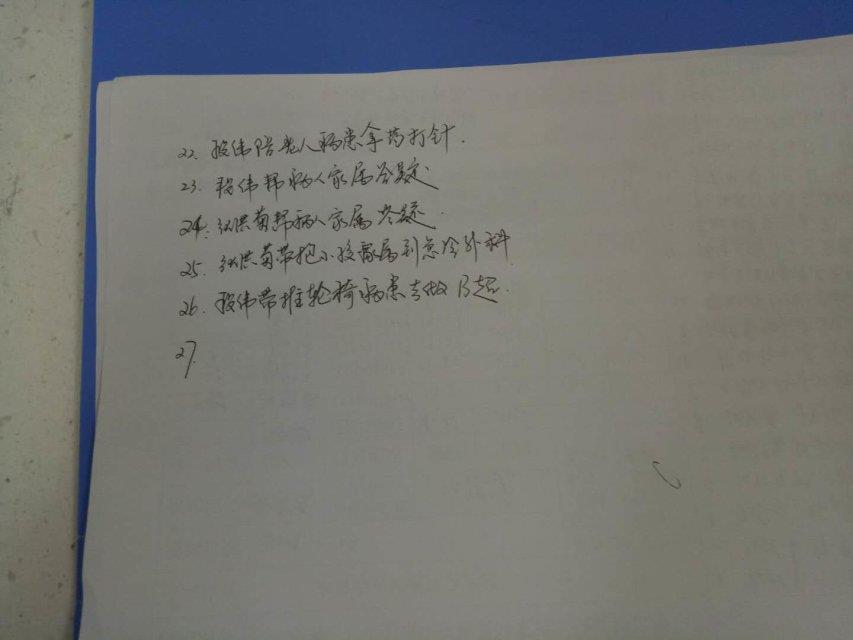 22. 段伟陪老人病患拿药打针.
23. 段伟帮病人家属答疑
24. 洪菊帮病人家属答疑.
25. 洪菊带抱小孩家属到急诊外科
26. 段伟带推轮椅病患去做B超.
27.